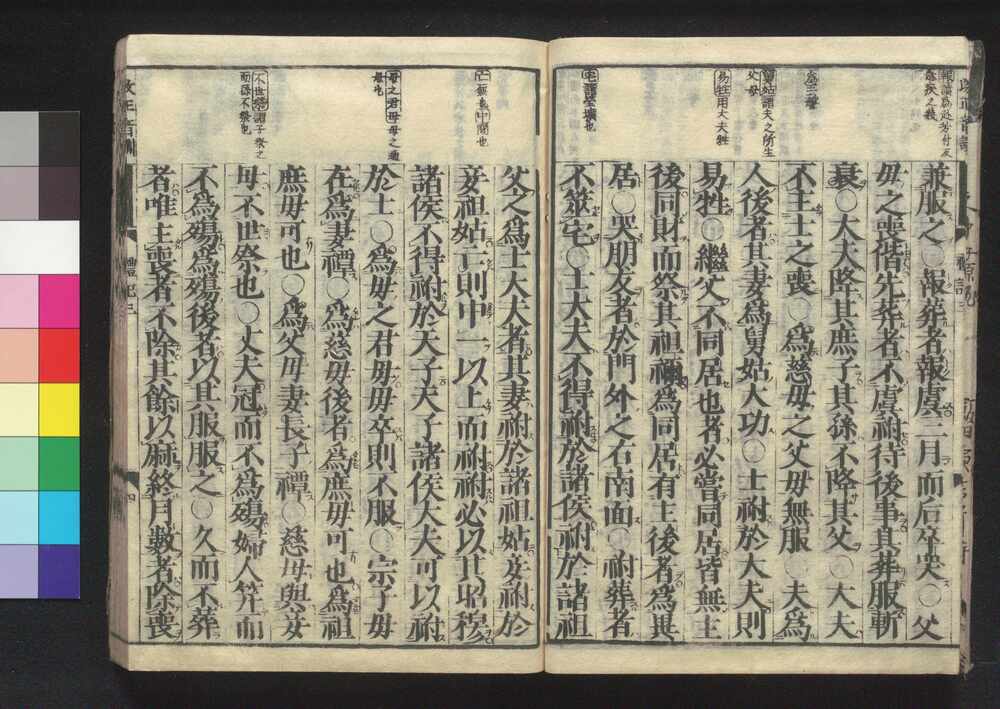 兼服之○報葬者報虞三月而后卒哭○父
母之喪偕先葬者不虞祔待後事其葬服斬
衰○大夫降其庶子其孫不降其父○大夫
不主士之喪○爲慈母之父母無服○夫爲
人後者其妻爲舅姑大功○士祔於大夫則
易牲○繼父不同居也者必嘗同居皆無主
後同財而祭其祖禰爲同居有主後者爲異
居○哭朋友者於門外之右南面○祔葬者
不筮宅○士大夫不得祔於諸侯祔於諸祖
舅姑謂夫之所生父母
易牲用大夫牲
宅謂塋壙也
父之爲士大夫者其妻祔於諸祖姑妾祔於
妾祖姑亡則中一以上而祔祔必以其昭穆
諸侯不得祔於天子天子諸侯大夫可以祔
於士○爲母之君母母卒則不服○宗子母
在爲妻禫○爲慈母後者爲庶母可也爲祖
庶母可也○爲父母妻長子禫○慈母與妾
母不世祭也○丈夫冠而不爲殤婦人笄而
不爲殤爲殤後者以其服服之○久而不葬
者唯主喪者不除其餘以麻終月數者除喪
母之君母母之適母也
不世祭謂子祭之而孫不祭也
禮記三
四